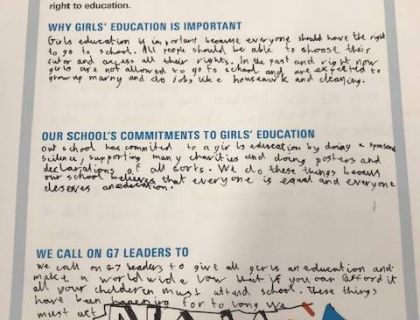 right to education.
WHY GIRLS' EDUCATION IS IMPORTANT
Girls education is important because everyone should have the right
to go to school. All people should be able to choose their
and access all their rights. In the past and right now
girls are not allowed to go to school and are expected to
grow up marry and do jobs like housework and cleaning.
OUR SCHOOL'S COMMITMENTS TO GIRLS' EDUCATION
Our school has committed to a girls education by doing a sponsored
science, supporting many charities and doing posters and
declarations of all sorts. We do these things because
our school believes that everyone is equal and everyone
deserves an education.
WE CALL ON G7 LEADERS TO
we call on G7 leaders to give all girls an education and
make a worldwide law that if you can afford it
all your children must attend school. These things
have been happening for to long we
must act NOW!